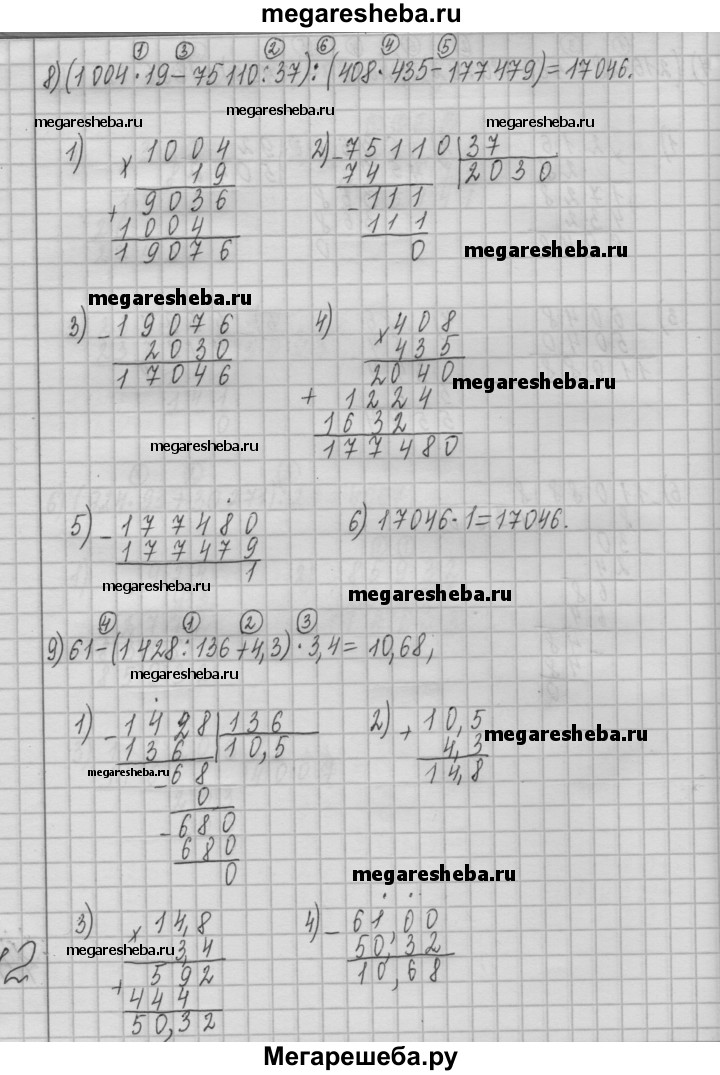 megaresheba.ru
① ③ ② ⑥ ④ ⑤
8) (1 004 · 19 – 75 110 : 37) : (408 · 435 – 177 479) = 17 046.
megaresheba.ru megaresheba.ru megaresheba.ru
1) × 1004 2) – 75110 | 37
19 74 2030
+ 9036 – 111
1004 111
19076 0 megaresheba.ru
megaresheba.ru
3) – 19076 4) × 408
2030 435
17046 2040 megaresheba.ru
+ 1224
megaresheba.ru 1632
177480
5) – 177480 6) 17046 · 1 = 17046.
177479
megaresheba.ru 1 megaresheba.ru
④ ① ② ③
9) 61 – (1 428 : 136 + 4,3) · 3,4 = 10,68;
megaresheba.ru
1) – 1428 | 136 2) + 10,5 megaresheba.ru
136 10,5 4,3
megaresheba.ru – 68 14,8
0
– 680
680
0 megaresheba.ru
3) × 14,8 4) – 61,00
megaresheba.ru 3,4 50,32
+ 592 10,68
444
50,32
Мегарешеба.ру